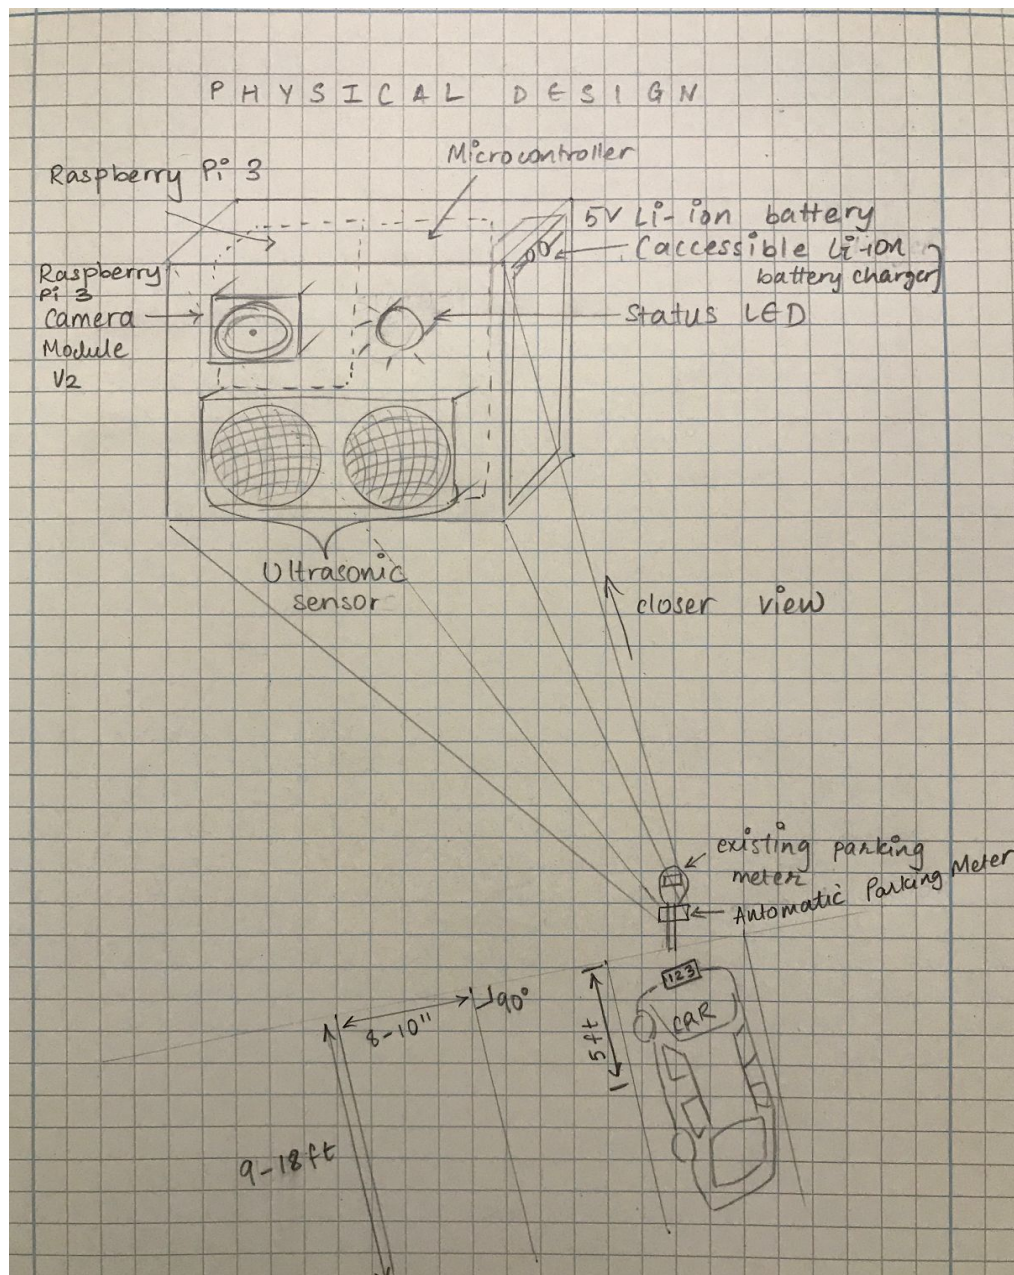 PHYSICAL DESIGN
Raspberry Pi 3
Microcontroller
5V Li-ion battery
(accessible Li-ion
battery charger)
Raspberry
Pi 3
Camera
Module
V2
Status LED
Ultrasonic
sensor
closer view
existing parking
meter
Automatic Parking Meter
123
CAR
90°
8-10"
5ft
9-18ft